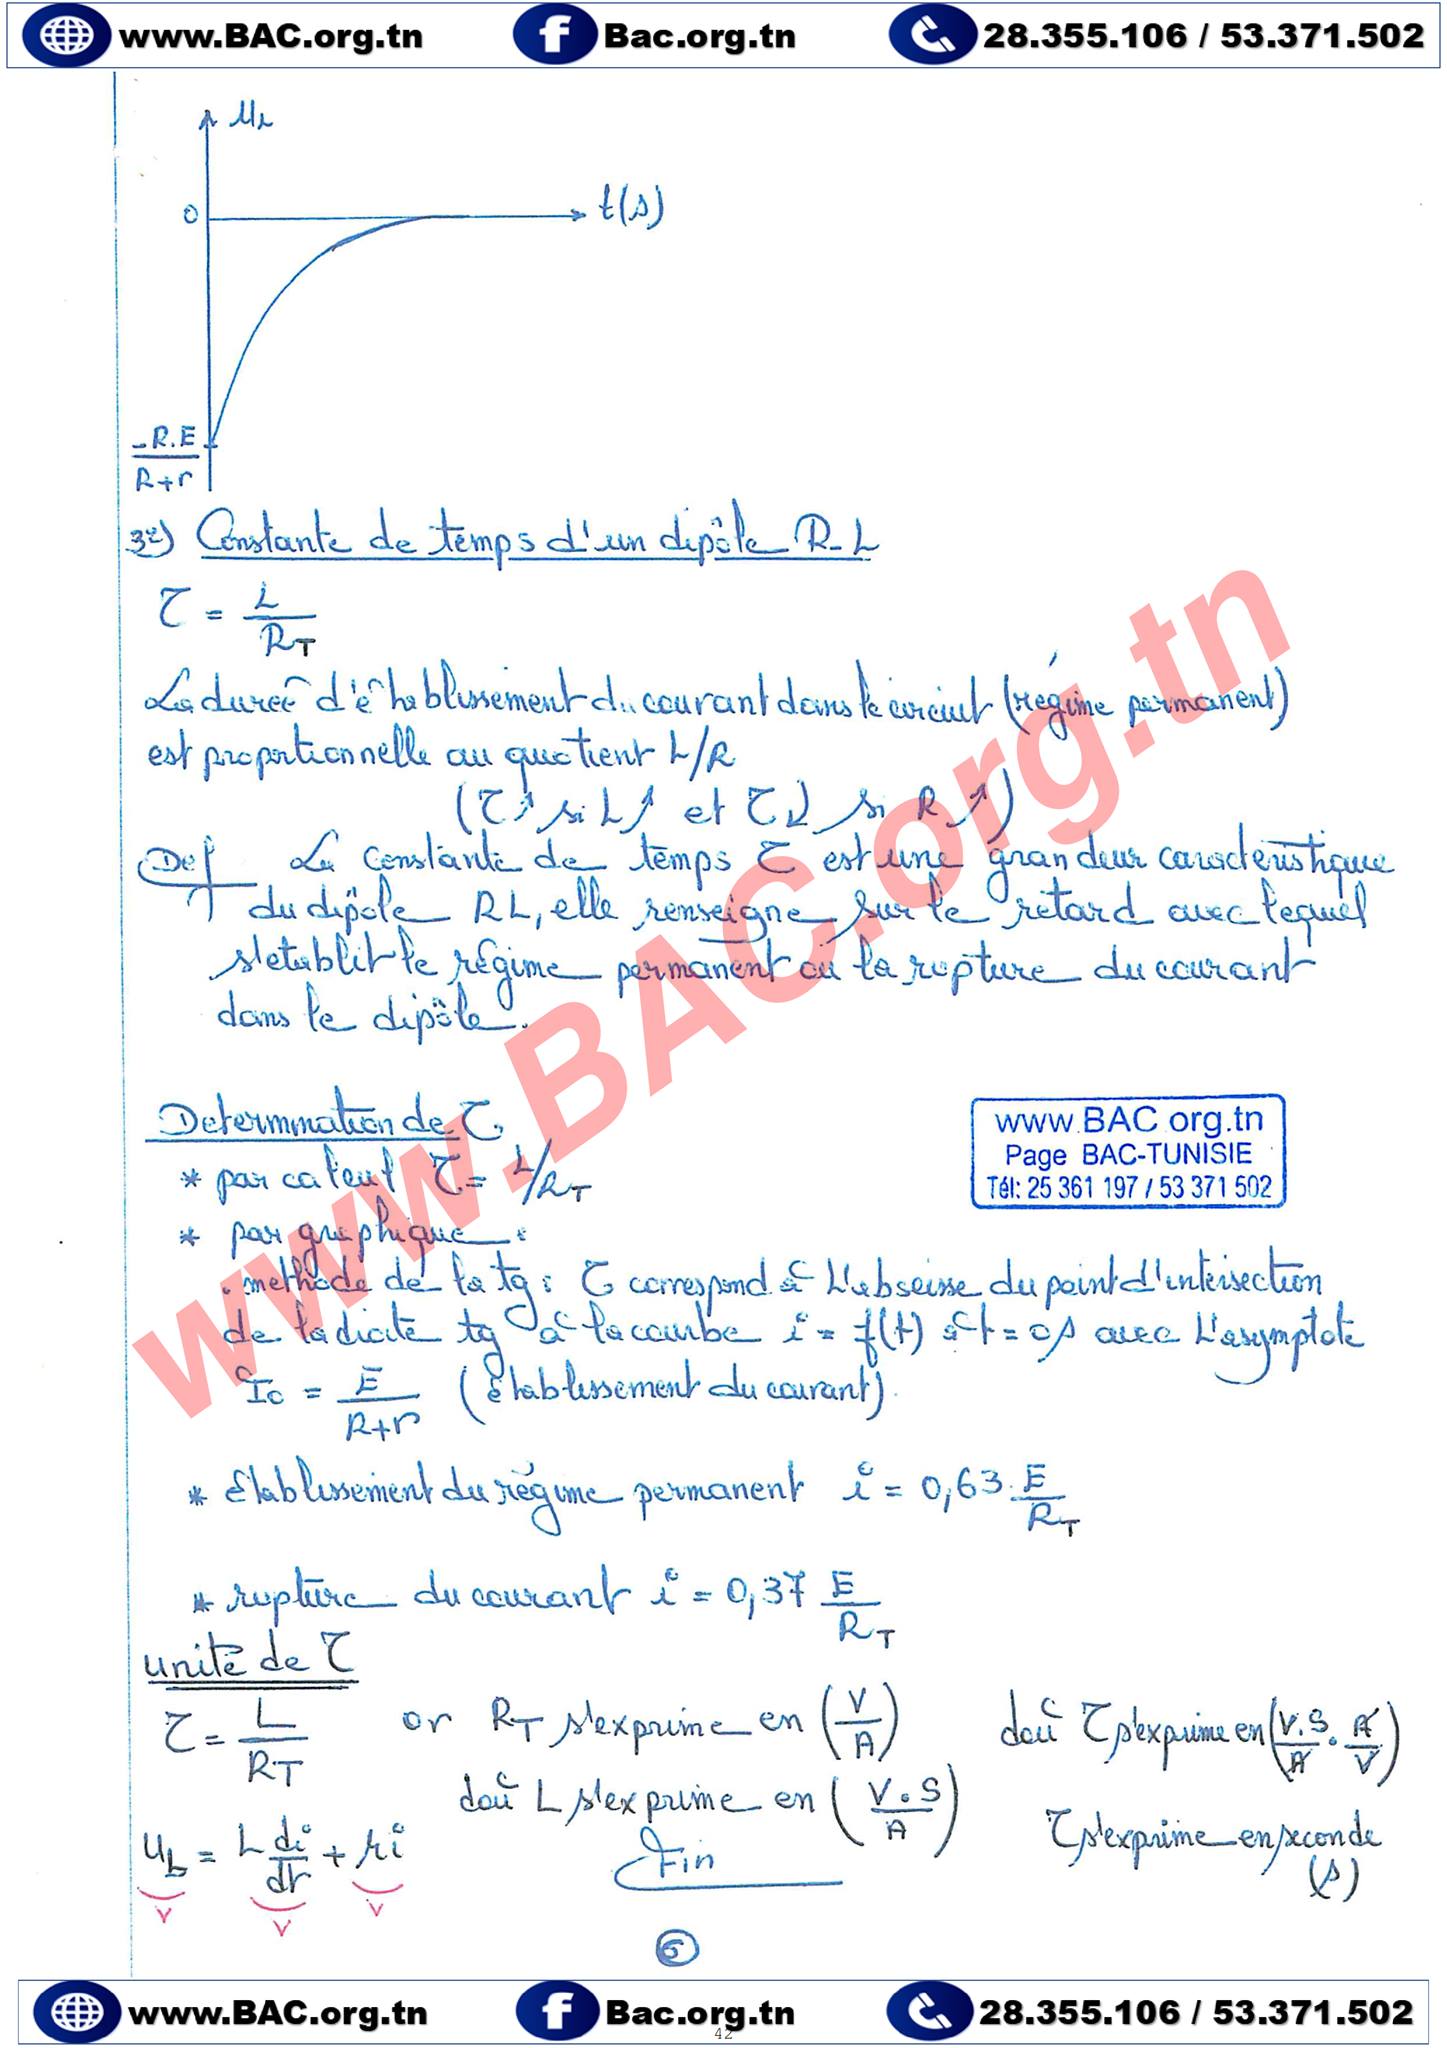 www.BAC.org.tn Bac.org.tn 28.355.106 / 53.371.502
uL
0 t(s)
-R.E
R+r
3°) Constante de temps d'un dipôle R-L
τ = L / RT
La durée d'établissement du courant dans le circuit (régime permanent)
est proportionnelle au quotient L/R
(τ↗ si L↗ et τ↘ si R↗)
Def La constante de temps τ est une grandeur caractéristique
du dipôle RL, elle renseigne sur le retard avec lequel
s'etablit le régime permanent où la rupture du courant
dans le dipôle.
Determination de τ
www.BAC.org.tn
Page BAC-TUNISIE
Tél: 25 361 197 / 53 371 502
* par calcul τ = L/RT
* par graphique :
. methode de la tg : τ correspond à L'abscisse du point d'intersection
de la droite tg à la courbe i = f(t) à t = 0s avec L'asymptote
I0 = E / R+r (établissement du courant).
* établissement du régime permanent i = 0,63. E / RT
* rupture du courant i = 0,37 E / RT
unité de τ
τ = L / RT or RT s'exprime en (V/A) d'où τ s'exprime en (V.S/A . A/V)
d'où L s'exprime en (V.S/A)
τ s'exprime en seconde
(s)
uL = L di/dt + ri
V V V
Fin
6
www.BAC.org.tn
www.BAC.org.tn Bac.org.tn 28.355.106 / 53.371.502
42